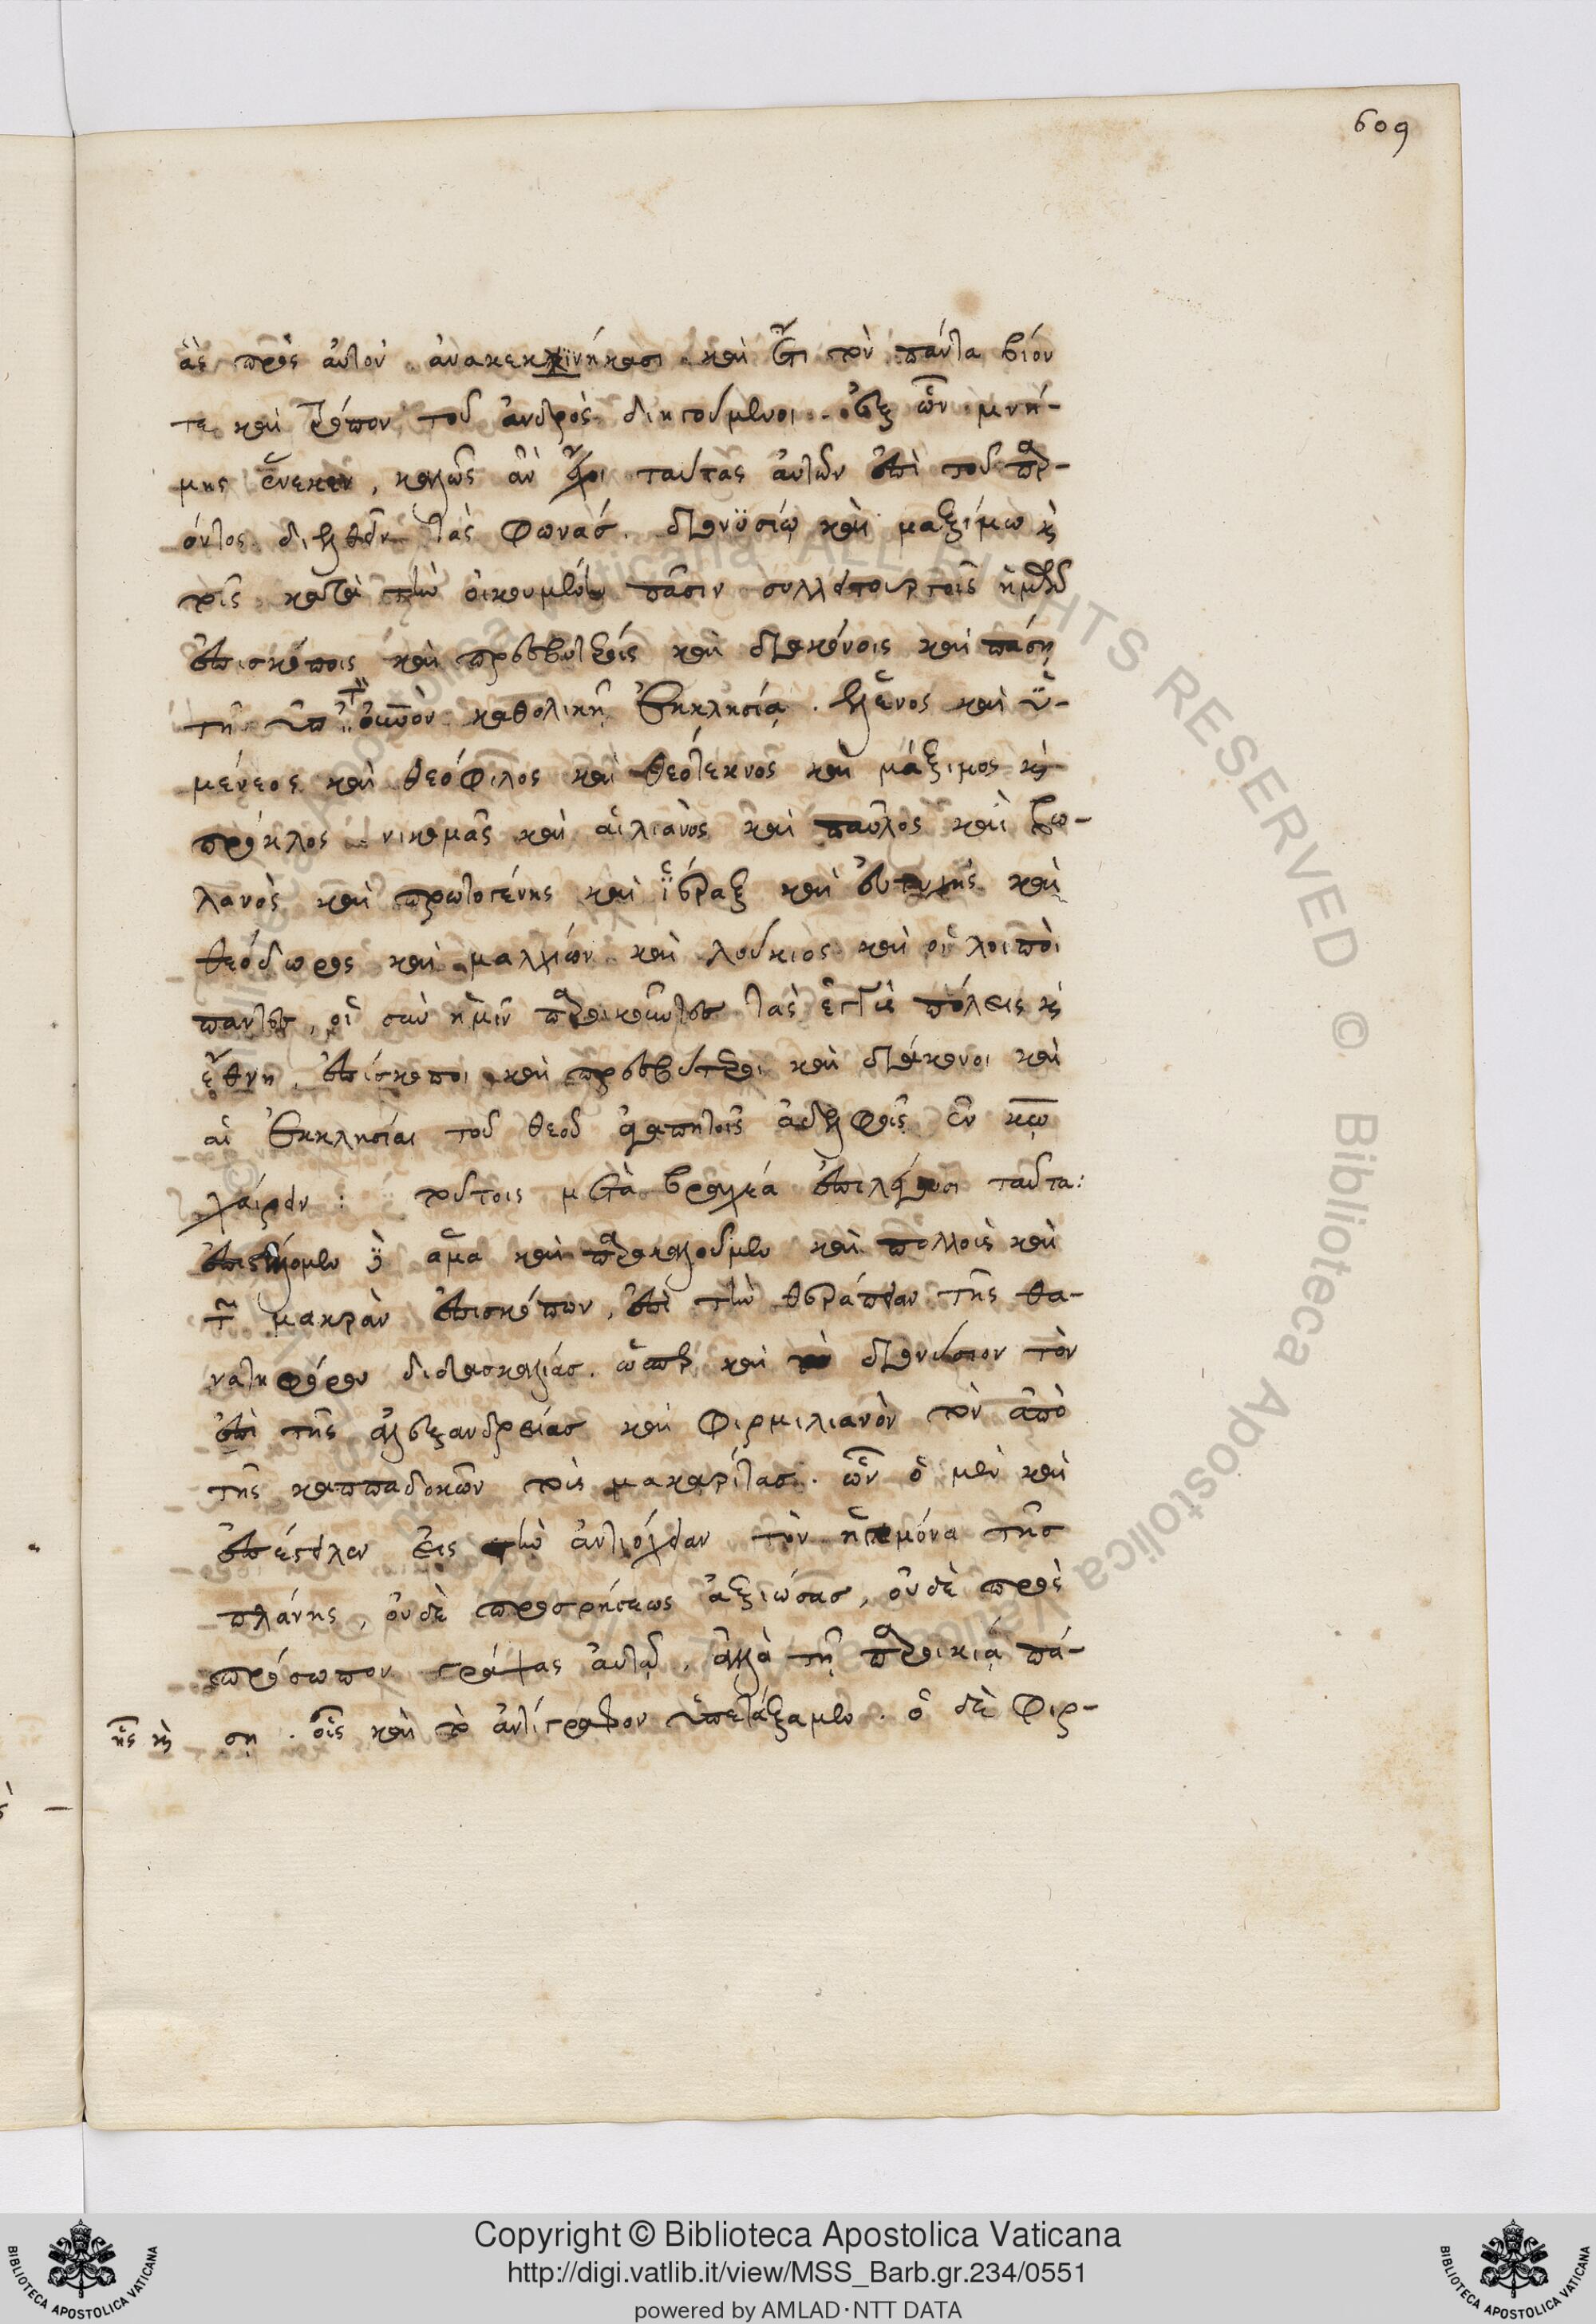 609
ἃς πρὸς αὐτὸν ἀνακεκινήκασι καὶ ἔτι τὸν πάντα βίον
τε καὶ τρόπον τοῦ ἀνδρὸς διηγούμενοι. ἐξ ὧν μνή-
μης ἕνεκεν, καλῶς ἂν ἔχοι ταύτας αὐτῶν ἐπὶ τοῦ παρ-
όντος διελθεῖν τὰς φωνάς. διονυσίῳ καὶ μαξίμῳ κ(αὶ)
τοῖς κατὰ τὴν οἰκουμένην πᾶσιν συλλειτουργοῖς ἡμῶν
ἐπισκόποις καὶ πρεσβυτέροις καὶ διακόνοις καὶ πάσῃ
τῇ ὑπὸ τὸν οὐρανὸν καθολικῇ ἐκκλησίᾳ. ἕλενος καὶ ὑ-
μένεος καὶ θεόφιλος καὶ θεότεκνος καὶ μάξιμος κ(αὶ)
πρόκλος νικομᾶς καὶ αἰλιανὸς καὶ παῦλος καὶ βω-
λανὸς καὶ πρωτογένης καὶ ἱέραξ καὶ εὐτυχὴς καὶ
θεόδωρος καὶ μαλχίων καὶ λούκιος καὶ οἱ λοιποὶ
πάντες, οἱ σὺν ἡμῖν παροικοῦντες τὰς ἐγγὺς πόλεις κ(αὶ)
ἔθνη, ἐπίσκοποι καὶ πρεσβύτεροι καὶ διάκονοι καὶ
αἱ ἐκκλησίαι τοῦ θεοῦ ἀγαπητοῖς ἀδελφοῖς ἐν κῳ
χαίρειν: τούτοις μετὰ βραχέα ἐπιλέγουσι ταῦτα:
ἐπεστέλλομεν δὲ ἅμα καὶ παρεκαλοῦμεν καὶ πολλοὺς καὶ
τῶν μακρὰν ἐπισκόπων, ἐπὶ τὴν θεραπείαν τῆς θα-
νατηφόρου διδασκαλίας. ὥσπερ καὶ διονύσιον τὸν
ἐπὶ τῆς ἀλεξανδρείας καὶ φιρμιλιανὸν τὸν ἀπὸ
τῆς καππαδοκῶν τοὺς μακαρίτας. ὧν ὁ μὲν καὶ
ἐπέστειλεν εἰς τὴν ἀντιόχειαν τὸν ἡγεμόνα τῆς
πλάνης, οὐδὲ προσρήσεως ἀξιώσας, οὐδὲ πρὸς
πρόσωπον γράψας αὐτῷ, ἀλλὰ τῇ παροικίᾳ πά-
ἧς καὶ σῃ. οἷς καὶ τὸ ἀντίγραφον ὑπετάξαμεν. ὁ δὲ φιρ-
Copyright © Biblioteca Apostolica Vaticana
http://digi.vatlib.it/view/MSS_Barb.gr.234/0551
powered by AMLAD·NTT DATA